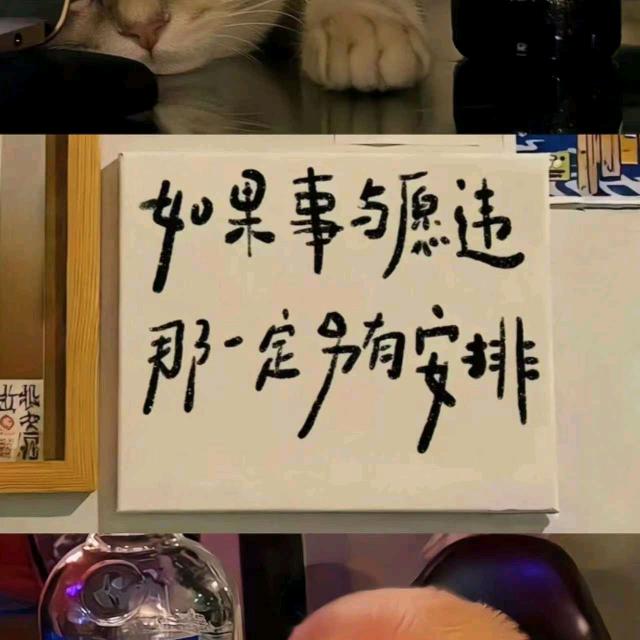 如果事与愿违
那一定另有安排